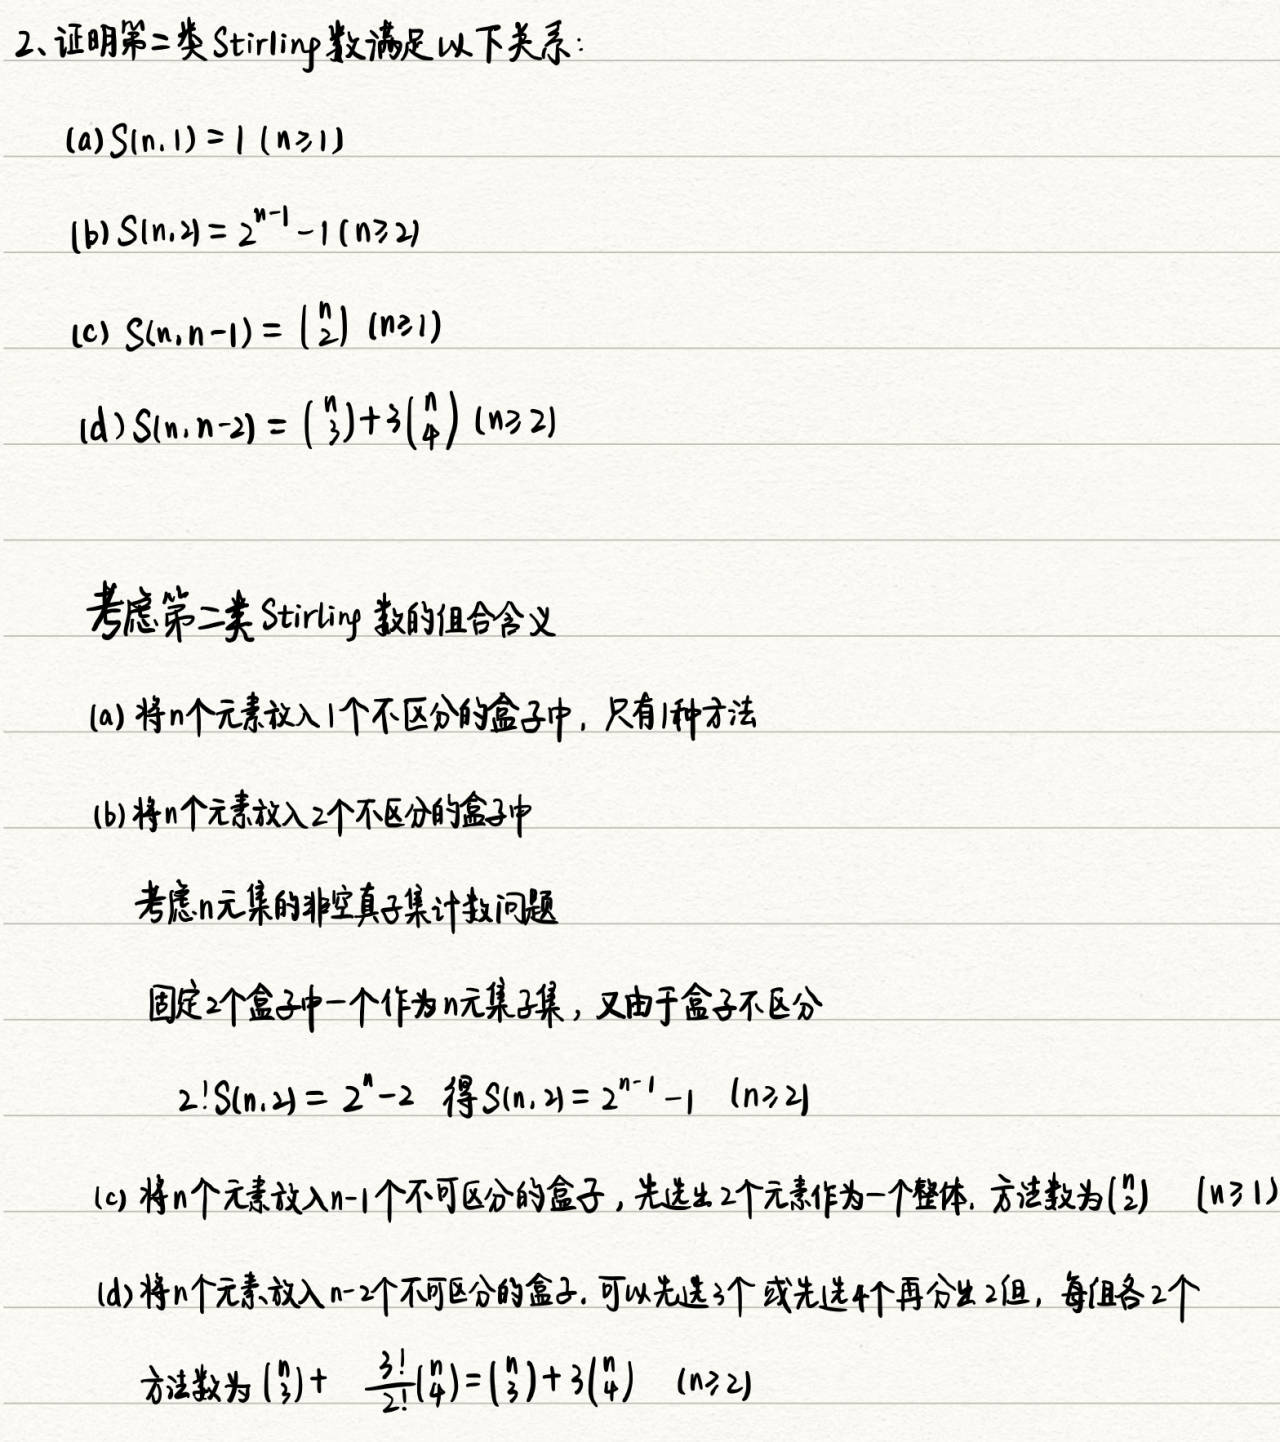 2、证明第二类Stirling数满足以下关系:
(a) S(n,1) = 1 (n≥1)
(b) S(n,2) = 2^{n-1} - 1 (n≥2)
(c) S(n,n-1) = \binom{n}{2} (n≥1)
(d) S(n,n-2) = \binom{n}{3} + 3\binom{n}{4} (n≥2)
考虑第二类Stirling数的组合含义
(a) 将n个元素放入1个不区分的盒子中, 只有1种方法
(b) 将n个元素放入2个不区分的盒子中
考虑n元集的非空真子集计数问题
固定2个盒子中一个作为n元集子集, 又由于盒子不区分
2!S(n,2) = 2^n - 2 得 S(n,2) = 2^{n-1} - 1 (n≥2)
(c) 将n个元素放入n-1个不可区分的盒子, 先选出2个元素作为一个整体. 方法数为\binom{n}{2} (n≥1)
(d) 将n个元素放入n-2个不可区分的盒子. 可以先选3个 或先选4个再分出2组, 每组各2个
方法数为 \binom{n}{3} + \frac{3!}{2!}\binom{n}{4} = \binom{n}{3} + 3\binom{n}{4} (n≥2)